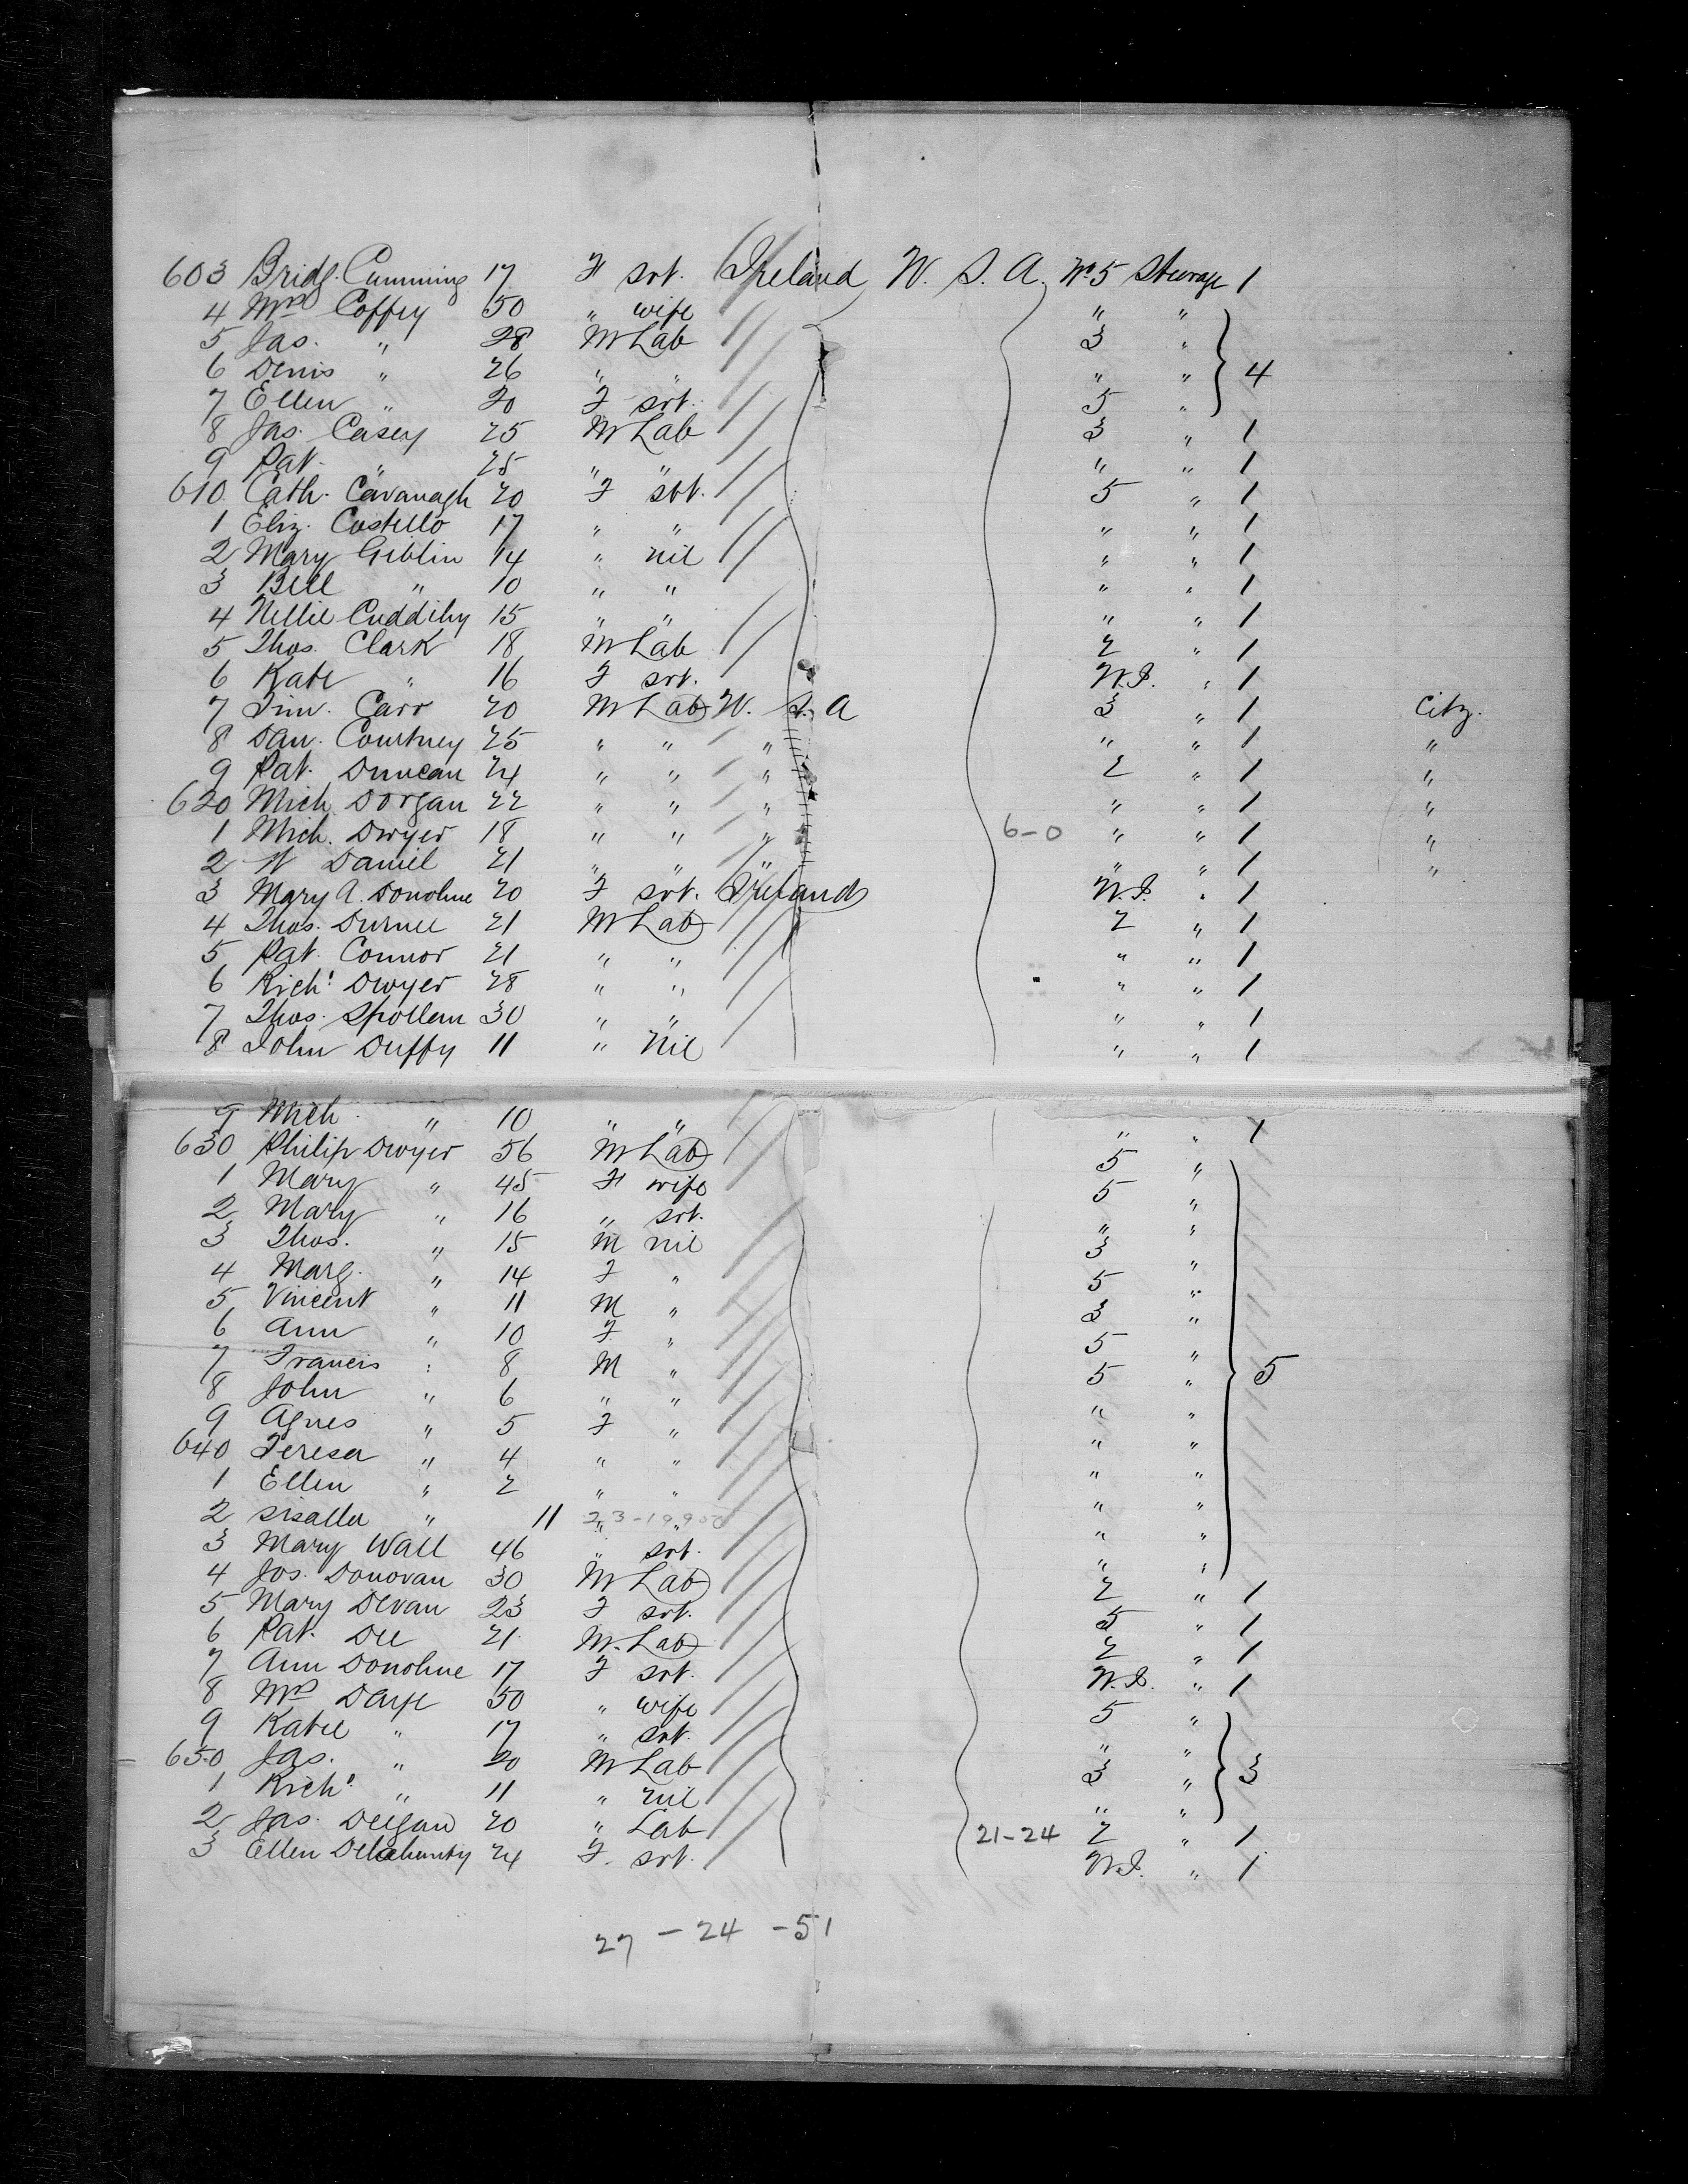 603 Bridg. Cumming 17 F srt. Ireland U. S. A. No. 5 Steerage 1
4 Mrs Coffey 50 " wife " "
5 Jas. " 28 M Lab 3 "
6 Denis " 26 " " " " 4
7 Ellen " 20 F srt. 5 "
8 Jas. Casey 25 M Lab 3 " 1
9 Pat. " 25 " " " " 1
610 Cath. Cavanagh 20 F srt. 5 " 1
1 Eliz. Costello 17 " " " " 1
2 Mary Giblin 14 " nil " " 1
3 Bell " 10 " " " " 1
4 Nellie Cuddihy 15 " " " " 1
5 Thos. Clark 18 M Lab 2 " 1
6 Kate " 16 F srt. W.S. " 1
7 Tim. Carr 20 M Lab U. S. A 3 " 1 Citz.
8 Dan. Courtney 25 " " " " " 1 "
9 Pat. Duncan 24 " " " 2 " 1 "
620 Mich Dorgan 22 " " " " " 1 "
1 Mich. Dwyer 18 " " " 6-0 " " 1 "
2 W Daniel 21 " " " " " 1 "
3 Mary A. Donohue 20 F srt. Ireland W.S. " 1
4 Thos. Durnee 21 M Lab 2 " 1
5 Pat. Connor 21 " " " " 1
6 Richd Dwyer 28 " " " " 1
7 Thos. Spollem 30 " " " " 1
8 John Duffy 11 " nil " " 1
9 Mich " 10 " " " " 1
630 Philip Dwyer 56 M Lab 5 "
1 Mary " 45 F wife 5 "
2 Mary " 16 " srt. " "
3 Thos. " 15 M nil 3 "
4 Marg. " 14 F " 5 "
5 Vincent " 11 M " 3 "
6 Ann " 10 F " 5 "
7 Francis " 8 M " 5 " 5
8 John " 6 " " " "
9 Agnes " 5 F " " "
640 Teresa " 4 " " " "
1 Ellen " 2 " " " "
2 " 11 " " " "
3 Mary Wall 46 " srt. " "
4 Jos. Donovan 30 M Lab 2 " 1
5 Mary Devan 23 F srt. 5 " 1
6 Pat. Dee 21 M. Lab 2 " 1
7 Ann Donohue 17 F srt. W.S. " 1
8 Mrs 50 " wife 5 "
9 Katie " 17 " srt. " "
650 Jas. " 20 M Lab 3 " 3
1 Richd " 11 " nil " "
2 Jas. Deegan 20 " Lab 21-24 2 " 1
3 Ellen Delahunty 24 F. srt. W.S. " 1
27 - 24 - 51